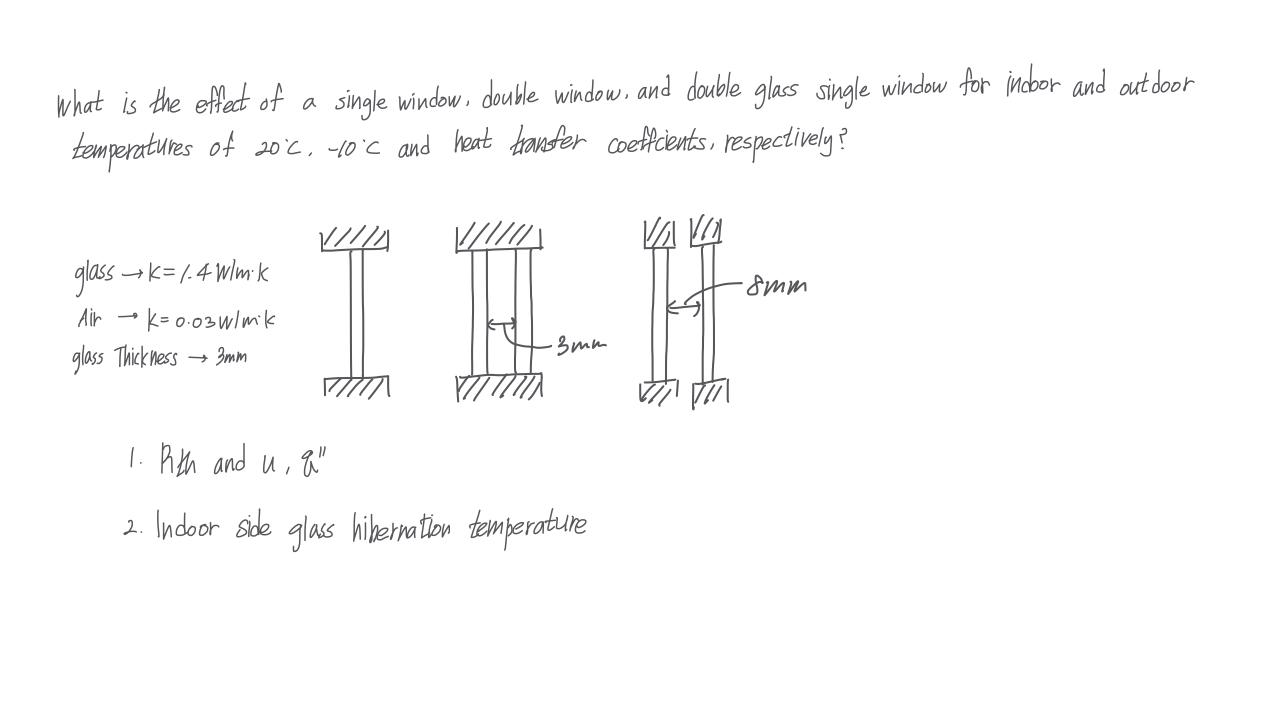 What is the effect of a single window, double window, and double glass single window for indoor and outdoor
temperatures of 20°C, -10°C and heat transfer coeffcients, respectively?
glass → k=1.4 W/m·k
Air → k=0.03 W/m·k
glass Thickness → 3mm
3mm
8mm
1. Rth and u, q"
2. Indoor side glass hibernation temperature